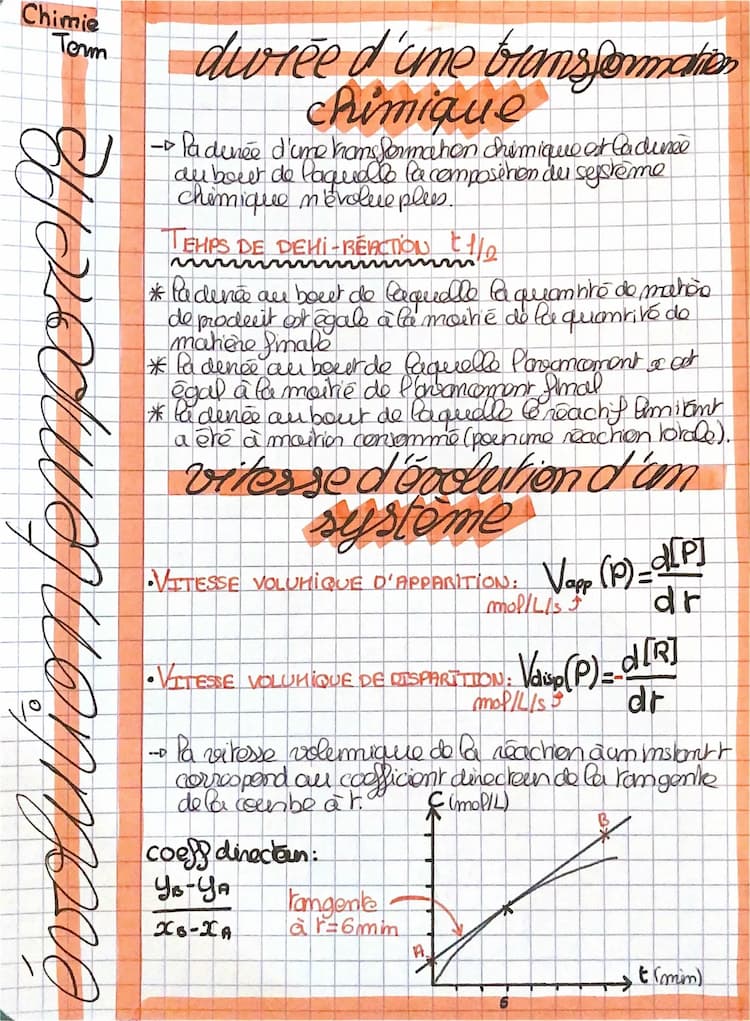 Chimie
Term
évolution temporelle
durée d'une transformation
chimique
→ la durée d'une transformation chimique est la durée
au bout de laquelle la composition du système
chimique n'évolue plus.
TEMPS DE DEMI-RÉACTION t1/2
* la durée au bout de laquelle la quantité de matière
de produit est égale à la moitié de la quantité de
matière finale
* la durée au bout de laquelle l'avancement x est
égal à la moitié de l'avancement final
* la durée au bout de laquelle le réactif limitant
a été à moitien consommé (pour une réaction totale).
vitesse d'évolution d'un
système
• VITESSE VOLUMIQUE D'APPARITION: Vapp (P) = d[P]/dt
mol/L/s
• VITESSE VOLUMIQUE DE DISPARITION: Vdisp (P) = -d[R]/dt
mol/L/s
→ la vitesse volumique de la réaction à un instant t
correspond au coefficient directeur de la tangente
de la courbe à t.
C (mol/L)
B
coeff directeur:
yB-yA
xB-xA
tangente
à t=6min
A
t (min)
6